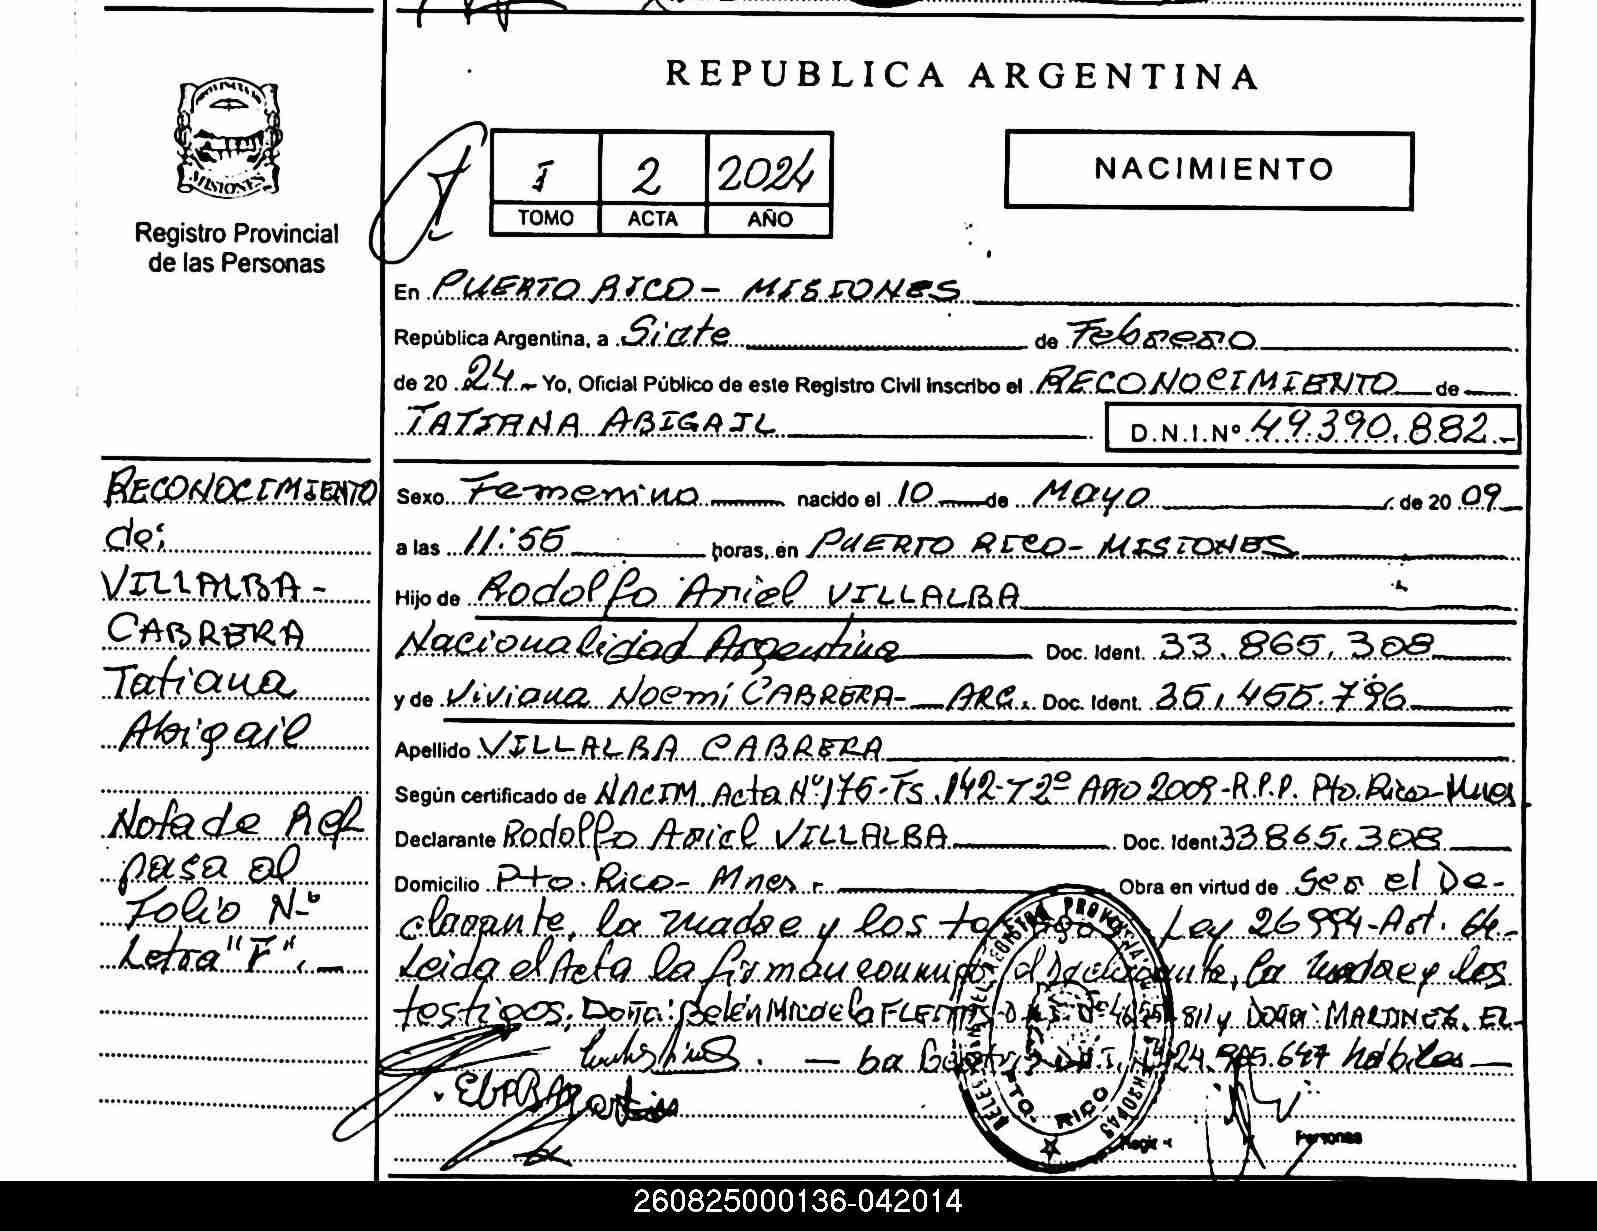 REPUBLICA ARGENTINA
MISIONES
Registro Provincial
de las Personas
I 2 2024
TOMO ACTA AÑO
NACIMIENTO
En PUERTO RICO - MISIONES
República Argentina, a Siete de Febrero
de 20 24 Yo, Oficial Público de este Registro Civil inscribo el RECONOCIMIENTO de
TATIANA ABIGAIL D.N.I.Nº 49.390.882.-
RECONOCIMIENTO
de:
VILLALBA-
CABRERA
Tatiana
Abigail
Nota de Ref
pasa al
Folio Nº
Letra "F".-
Sexo Femenino nacido el 10 de Mayo de 20 09
a las 11:55 horas, en PUERTO RICO - MISIONES
Hijo de Rodolfo Ariel VILLALBA
Nacionalidad Argentina Doc. Ident. 33.865.308
y de Viviana Noemí CABRERA- ARG. Doc. Ident. 35.455.796
Apellido VILLALBA CABRERA
Según certificado de NACIM. Acta Nº 175-Fs.142-T2º AÑO 2009-R.P.P. Pto. Rico-Mnes
Declarante Rodolfo Ariel VILLALBA Doc. Ident 33.865.308
Domicilio Pto. Rico - Mnes Obra en virtud de Ser el De-
clarante, la madre y los Ley 26994-Art.
Leida el Acta la firman conmigo, el Declarante, la madre y los
testigos: Doña: Belén de la y Doña: MARTINEZ, EL-
ba 647 hábiles
PTO. RICO
Personas
260825000136-042014